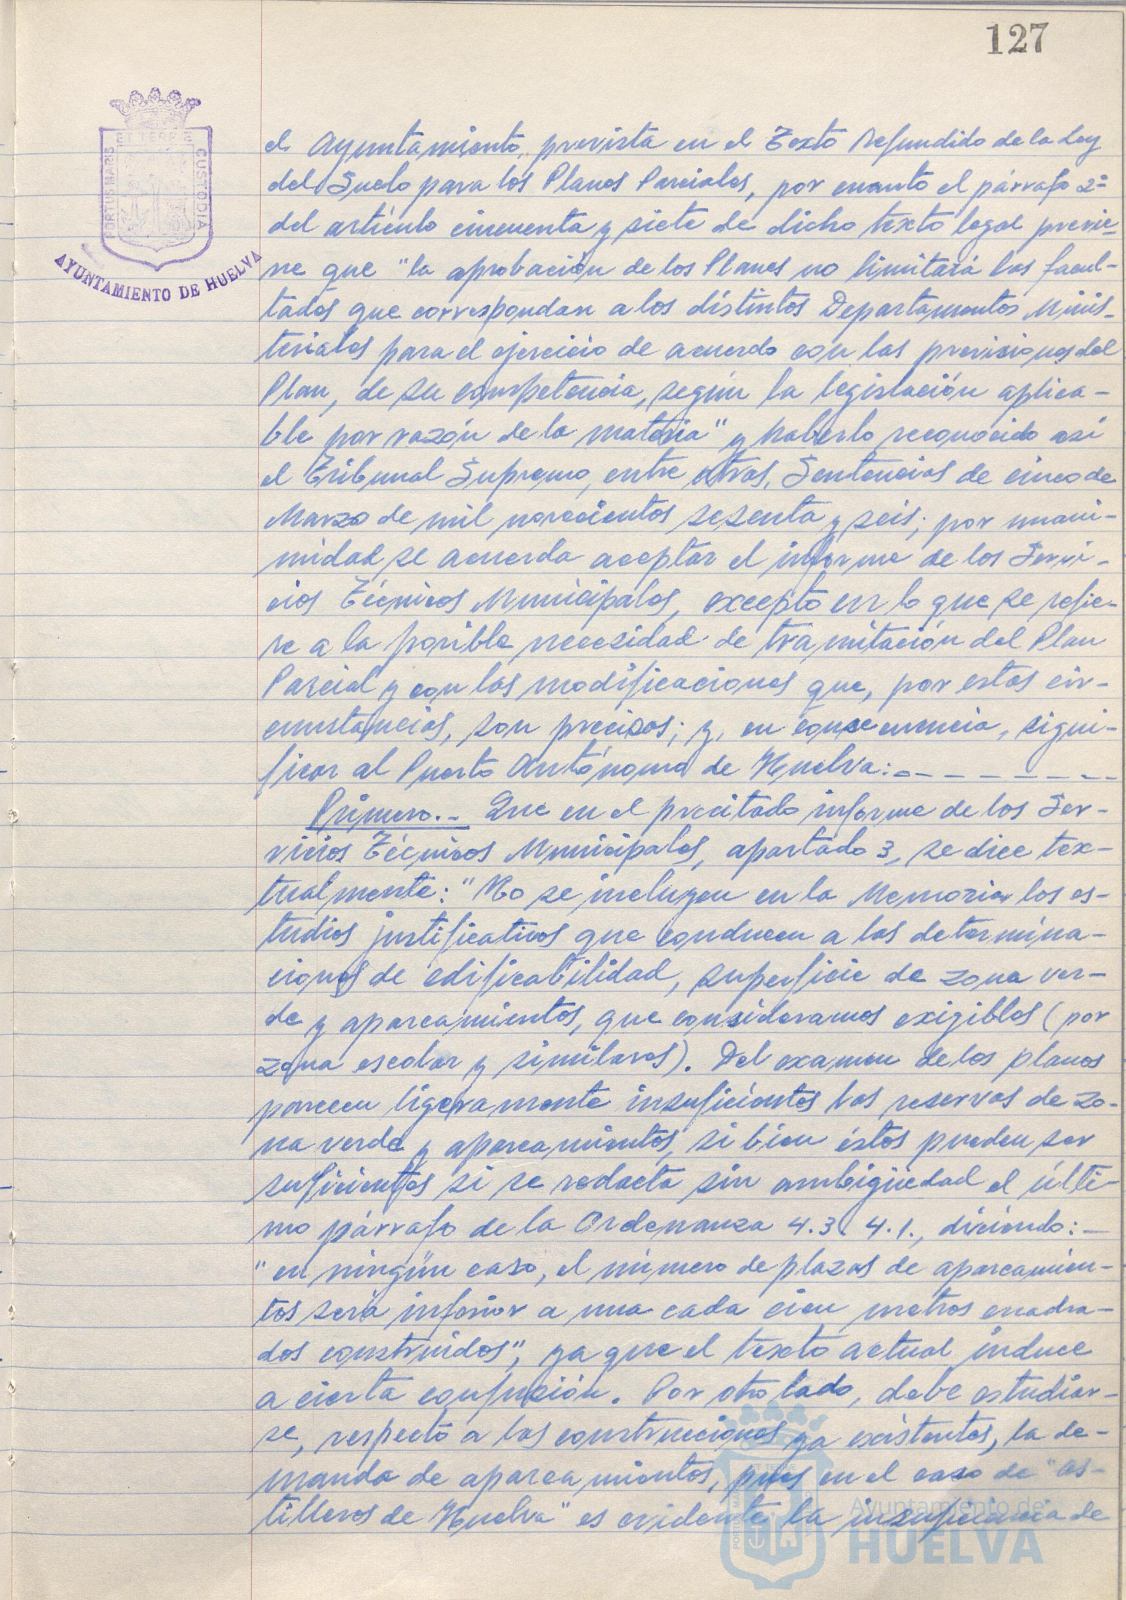 127
PORTUS MARIS
ET TERRE
CUSTODIA
AYUNTAMIENTO DE HUELVA
el Ayuntamiento, prevista en el Texto Refundido de la Ley
del Suelo para los Planes Parciales, por cuanto el párrafo 2º
del artículo cincuenta y siete de dicho texto legal previe-
ne que "la aprobación de los Planes no limitará las facul-
tades que correspondan a los distintos Departamentos Minis-
teriales para el ejercicio de acuerdo con las previsiones del
Plan, de su competencia, según la legislación aplica-
ble por razón de la materia" y haberlo reconocido así
el Tribunal Supremo, entre otras, Sentencias de cinco de
Marzo de mil novecientos sesenta y seis; por unani-
midad se acuerda aceptar el informe de los Servi-
cios Técnicos Municipales, excepto en lo que se refie-
re a la posible necesidad de tramitación del Plan
Parcial y con las modificaciones que, por estas cir-
cunstancias, son precisas; y, en consecuencia, signi-
ficar al Puerto Autónomo de Huelva:
Primero.- Que en el precitado informe de los Ser-
vicios Técnicos Municipales, apartado 3, se dice tex-
tualmente: "No se incluyen en la Memoria los es-
tudios justificativos que conducen a las determina-
ciones de edificabilidad, superficie de zona ver-
de y aparcamientos, que consideramos exigibles (por
zona escolar y similares). Del examen de los planos
parecen ligeramente insuficientes las reservas de zo-
na verde y aparcamientos, si bien éstos pueden ser
suficientes si se redacta sin ambigüedad el últi-
mo párrafo de la Ordenanza 4.3.4.1., diciendo:-
"en ningún caso, el número de plazas de aparcamien-
tos será inferior a una cada cien metros cuadra-
dos construidos", ya que el texto actual induce
a cierta confusión. Por otro lado, debe estudiar-
se, respecto a las construcciones ya existentes, la de-
manda de aparcamientos, pues en el caso de "As-
tilleros de Huelva" es evidente la insuficiencia de
Ayuntamiento de
HUELVA